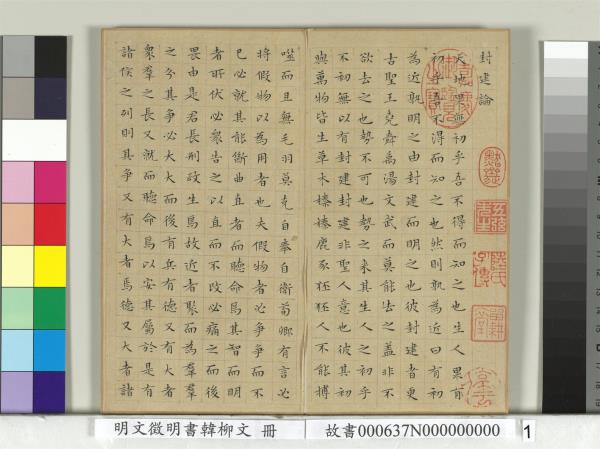 封建論
天地果無初乎吾不得而知之也生人果有
初乎吾不得而知之也然則孰為近曰有初
為近孰明之由封建而明之也彼封建者更
古聖王堯舜禹湯文武而莫能去之蓋非不
欲去之也勢不可也勢之来其生人之初乎
不初無以有封建封建非聖人意也彼其初
與萬物皆生草木榛榛鹿豕狉狉人不能搏
噬而且無毛羽莫克自奉自衛荀卿有言必
將假物以為用者也夫假物者必爭爭而不
已必就其能斷曲直者而聽命焉其智而明
者所伏必衆告之以直而不改必痛之而後
畏由是君長刑政生焉故近者聚而為羣羣
之分其爭必大大而後有兵有德又有大者
衆羣之長又就而聽命焉以安其屬於是有
諸侯之列則其爭又有大者焉德又大者諸
明文徵明書韓柳文 冊
故書000637N000000000
1